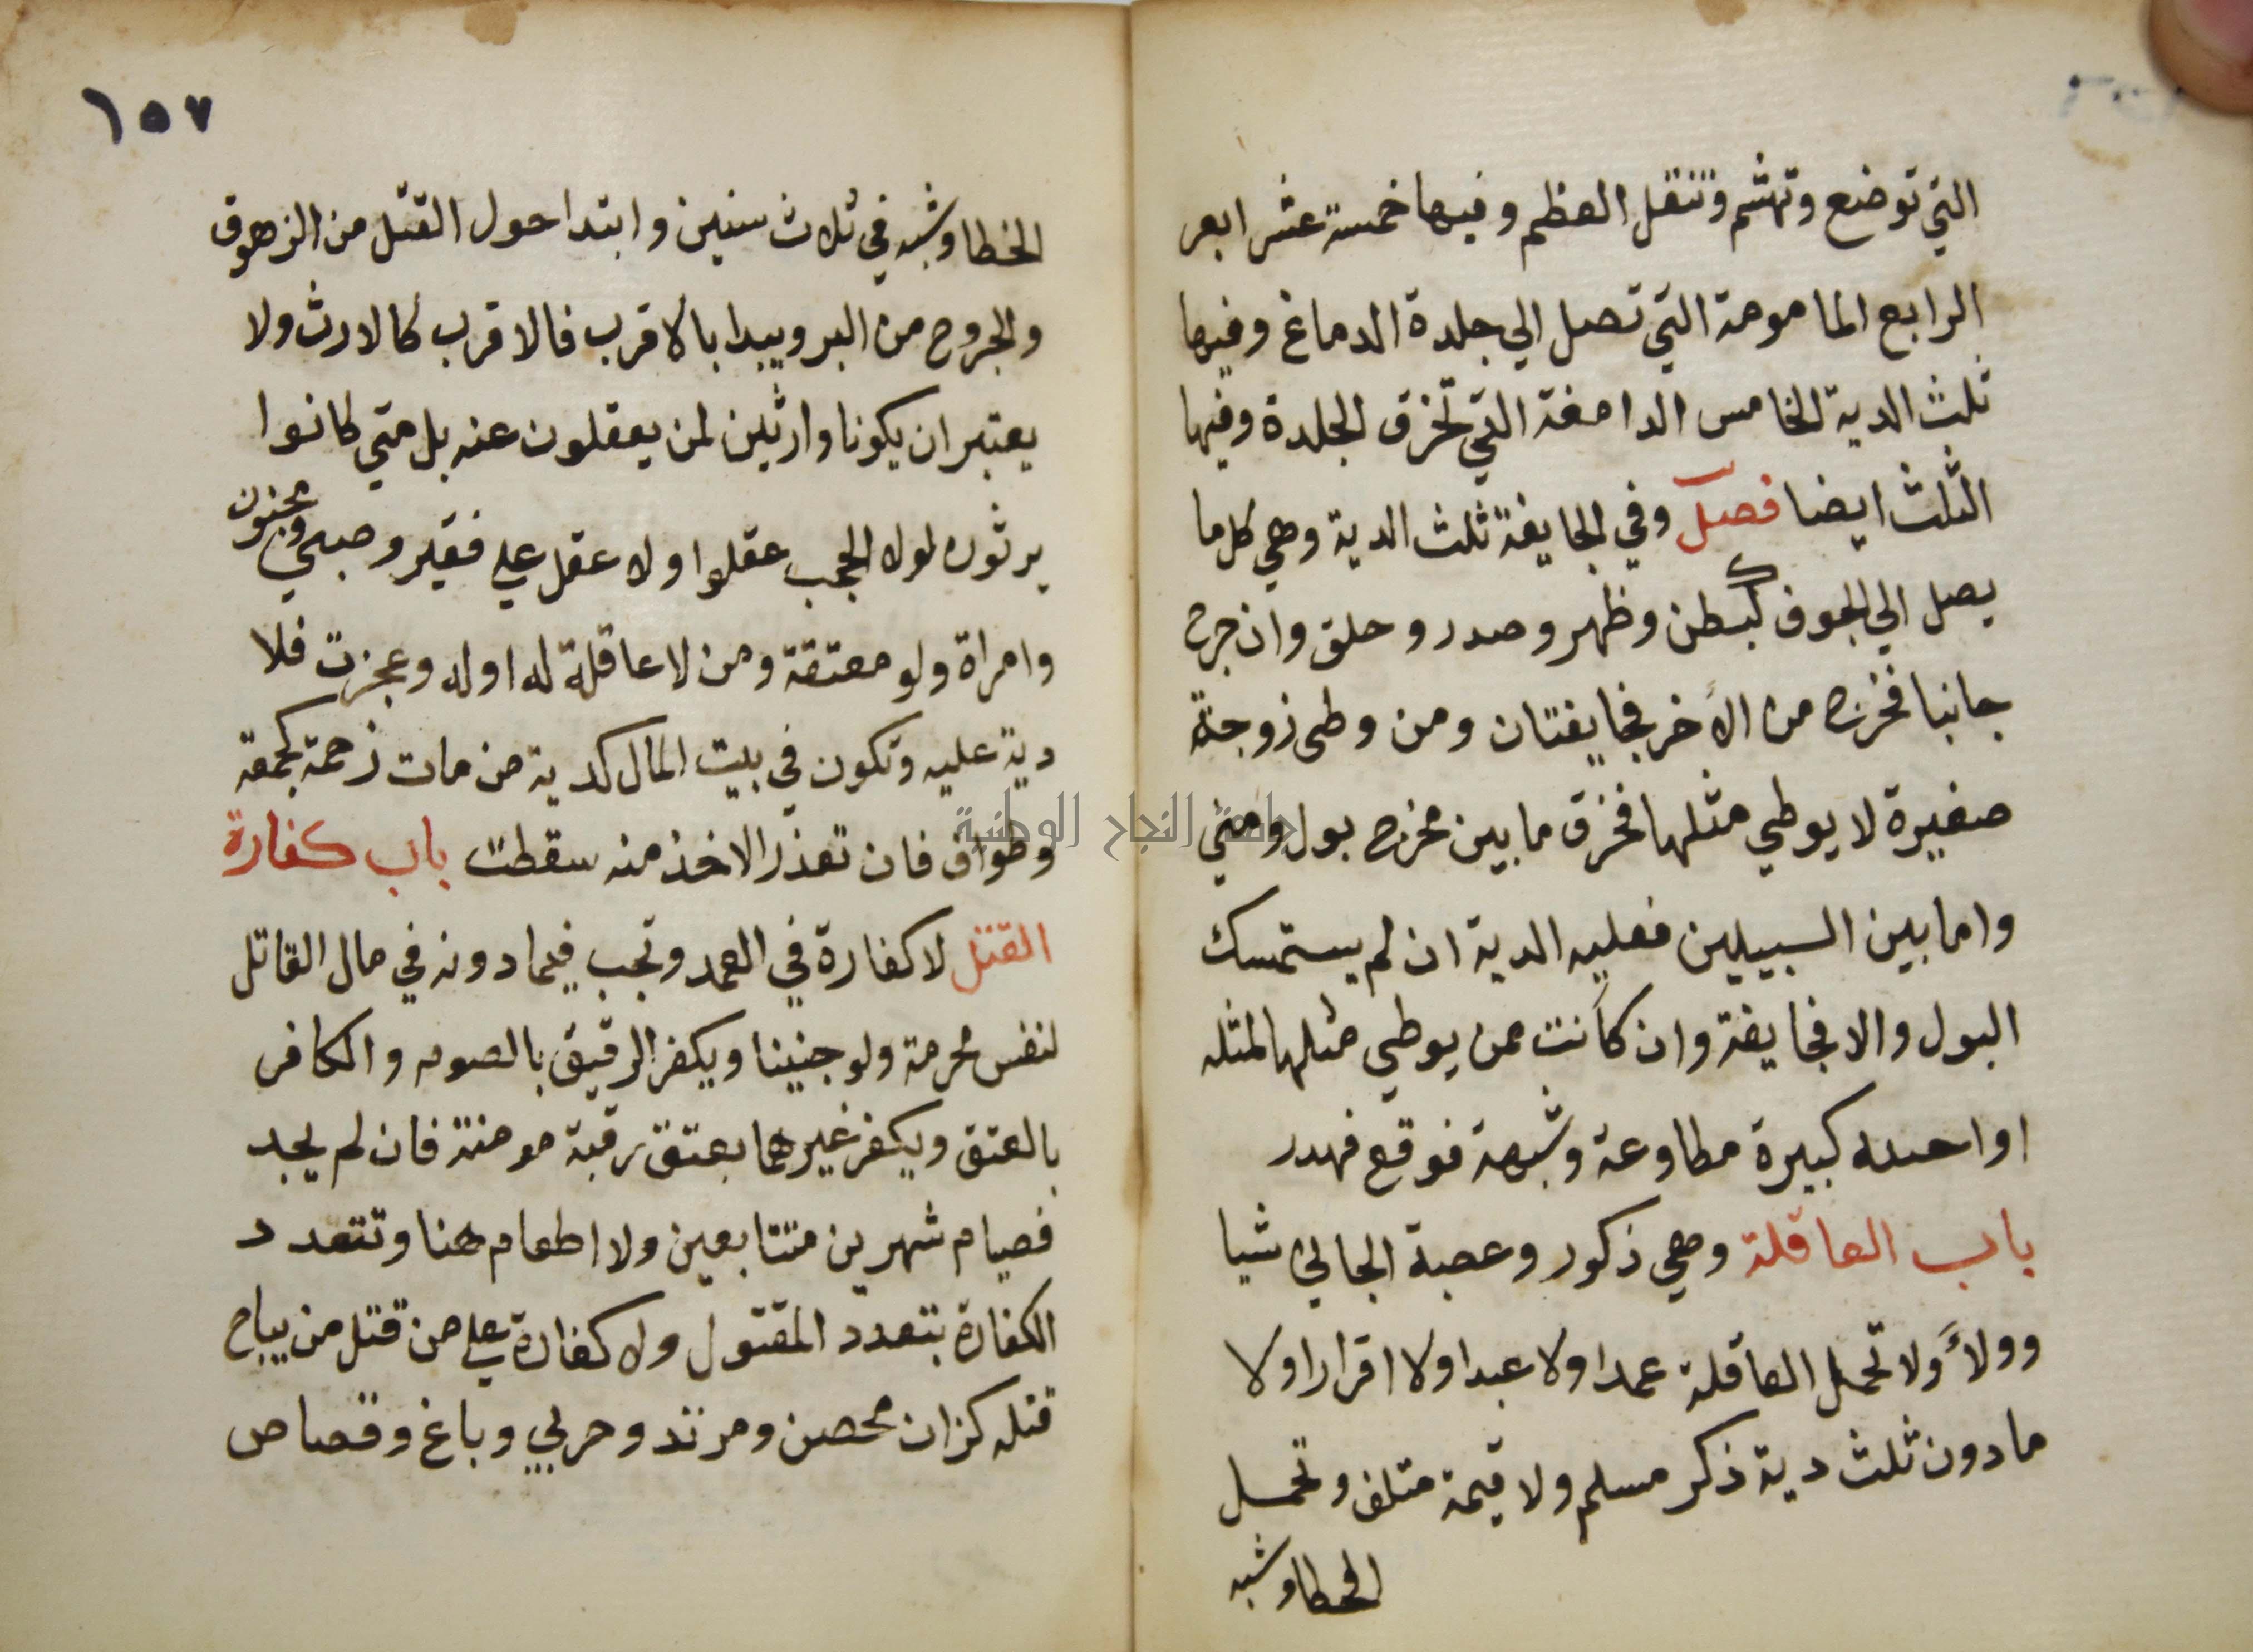 التي توضع وتهشم وتنقل العظم وفيها خمسة عشر ابعر
الرابع المامومة التي تصل الي جلدة الدماغ وفيها
ثلث الدية الخامس الدامغة التي تخرق الجلدة وفيها
الثلث ايضا فصل وفي الجايفة ثلث الدية وهي كل ما
يصل الي الجوف كبطن وظهر وصدر وحلق وان جرح
جانبا فخرج من الأخر فجايفتان ومن وطي زوجة
صغيرة لا يوطي مثلها فخرق ما بين مخرج بول ومني
واما بين السبيلين فعليه الدية ان لم يستمسك
البول والا فجايفة وان كانت ممن يوطي مثلها لمثله
او كبيرة مطاوعة وشبهة فوقع فهدر
باب العاقلة وهي ذكور وعصبة الجاني
وولاً ولا تحمل العاقلة عمدا ولا عبدا ولا اقرارا ولا
ما دون ثلث دية ذكر مسلم ولا قيمة متلف وتحمل
الخطا وشبه
١٥٧
الخطا وشبه في ثلاث سنين وابتدا حول القتل من الزهوق
والجروح من البر ويبدا بالاقرب فالاقرب كالارث ولا
يعتبر ان يكونا وارثين لمن يعقلون عنه بل متي كانوا
يرثون لولا الحجب عقلوا ولا عقل علي فقير وصبي ومجنون
وامراة ولو معتقة ومن لا عاقلة له اوله وعجزت فلا
دية عليه وتكون في بيت المال كدية من مات زحمة كجمعة
وطواف فان تعذر الاخذ منه سقطت باب كفارة
القتل لا كفارة في العمد وتجب فيما دونه في مال القاتل
لنفس محرمة ولو جنينا ويكفر الرقيق بالصوم والكافر
بالعتق ويكفر غيرهما بعتق رقبة مومنة فان لم يجد
فصيام شهرين متتابعين ولا اطعام هنا وتتعدد
الكفارة بتعدد المقتول ولا كفارة علي من قتل من يباح
قتله كزان محصن ومرتد وحربي وباغ وقصاص
جامعة النجاح الوطنية